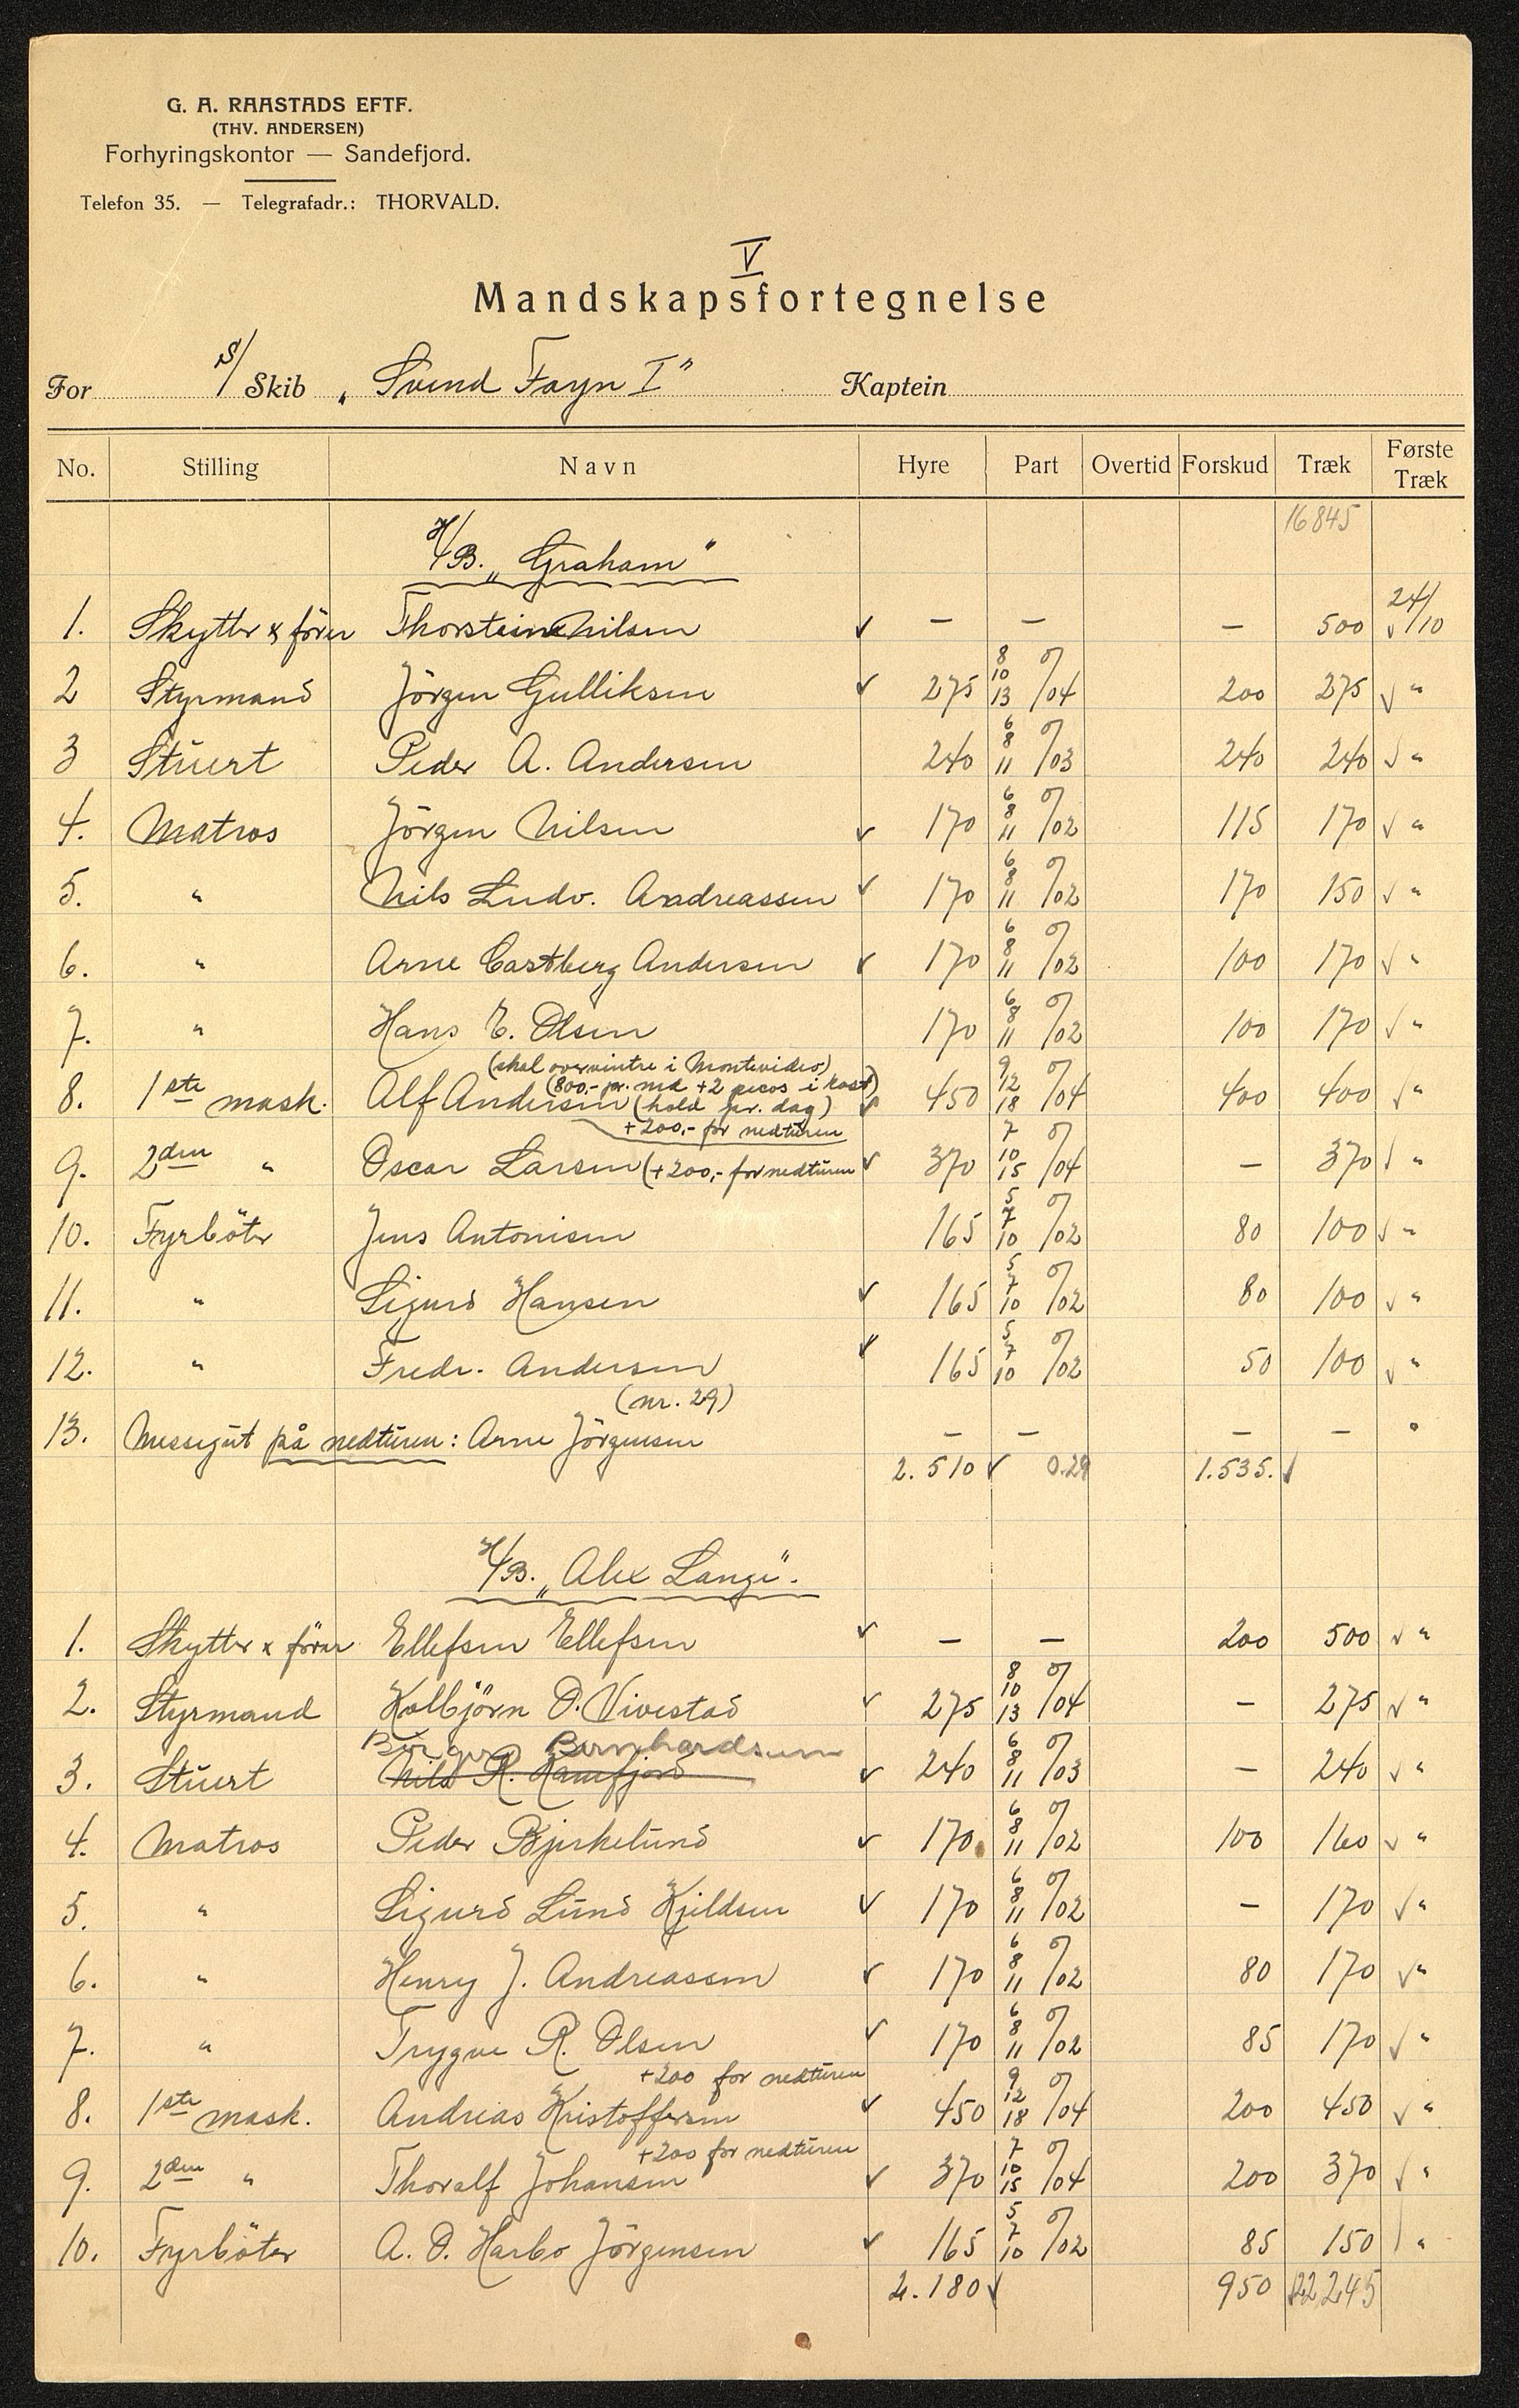 G. A. RAASTADS EFTF.
(THV. ANDERSEN)
Forhyringskontor — Sandefjord.
Telefon 35. — Telegrafadr.: THORVALD.
V
Mandskapsfortegnelse
For S/ Skib „Svend Foyn I" Kaptein
No. Stilling Navn Hyre Part Overtid Forskud Træk Første Træk
16845
H/B. „Graham"
1. Skytter & förer Thorstein Nilsen ✓ — — — 500 ✓ 24/10
2 Styrmand Jörgen Gulliksen ✓ 275 8 10 13 0/04 200 275 ✓ "
3 Stuert Peder A. Andersen 240 6 8 11 0/03 240 240 ✓ "
4. Matros Jörgen Nilsen ✓ 170 6 8 11 0/02 115 170 ✓ "
5. " Nils Ludv. Andreassen ✓ 170 6 8 11 0/02 170 150 ✓ "
6. " Arne Castberg Andersen ✓ 170 6 8 11 0/02 100 170 ✓ "
7. " Hans E. Olsen 170 6 8 11 0/02 100 170 ✓ "
(skal overvintre i Montevideo)
(800,- pr. md +2 pesos i kost)
8. 1ste mask. Alf Andersen (hold pr. dag) ✓ 450 9 12 18 0/04 400 400 ✓ "
+200,- for nedturen
9. 2den " Oscar Larsen (+200,- for nedturen ✓ 370 7 10 15 0/04 — 370 ✓ "
10. Fyrböter Jens Antonisen 165 5 7 10 0/02 80 100 ✓ "
11. " Sigurd Hansen ✓ 165 5 7 10 0/02 80 100 ✓ "
12. " Fredr. Andersen ✓ 165 5 7 10 0/02 50 100 ✓ "
(nr. 29)
13. Messegut på nedturen: Arne Jörgensen — — — — "
2.510 ✓ 0.29 1.535. ✓
H/B. „Alex Lange".
1. Skytter & förer Ellefsen Ellefsen ✓ — — 200 500 ✓ "
2. Styrmand Kolbjörn O. Vivestad ✓ 275 8 10 13 0/04 — 275 ✓ "
Birger Bernhardsen
3. Stuert Nils R. Ramfjord ✓ 240 6 8 11 0/03 — 240 ✓ "
4. Matros Peder Bjerkelund ✓ 170 6 8 11 0/02 100 160 ✓ "
5. " Sigurd Lund Kjeldsen ✓ 170 6 8 11 0/02 — 170 ✓ "
6. " Henry J. Andreassen ✓ 170 6 8 11 0/02 80 170 ✓ "
7. " Trygve R. Olsen ✓ 170 6 8 11 0/02 85 170 ✓ "
+200 for nedturen
8. 1ste mask. Andreas Kristoffersen ✓ 450 9 12 18 0/04 200 450 ✓ "
+200 for nedturen
9. 2den " Thoralf Johansen ✓ 370 7 10 15 0/04 200 370 ✓ "
10. Fyrböter A. O. Harbo Jörgensen ✓ 165 5 7 10 0/02 85 150 "
2.180 ✓ 950 22245